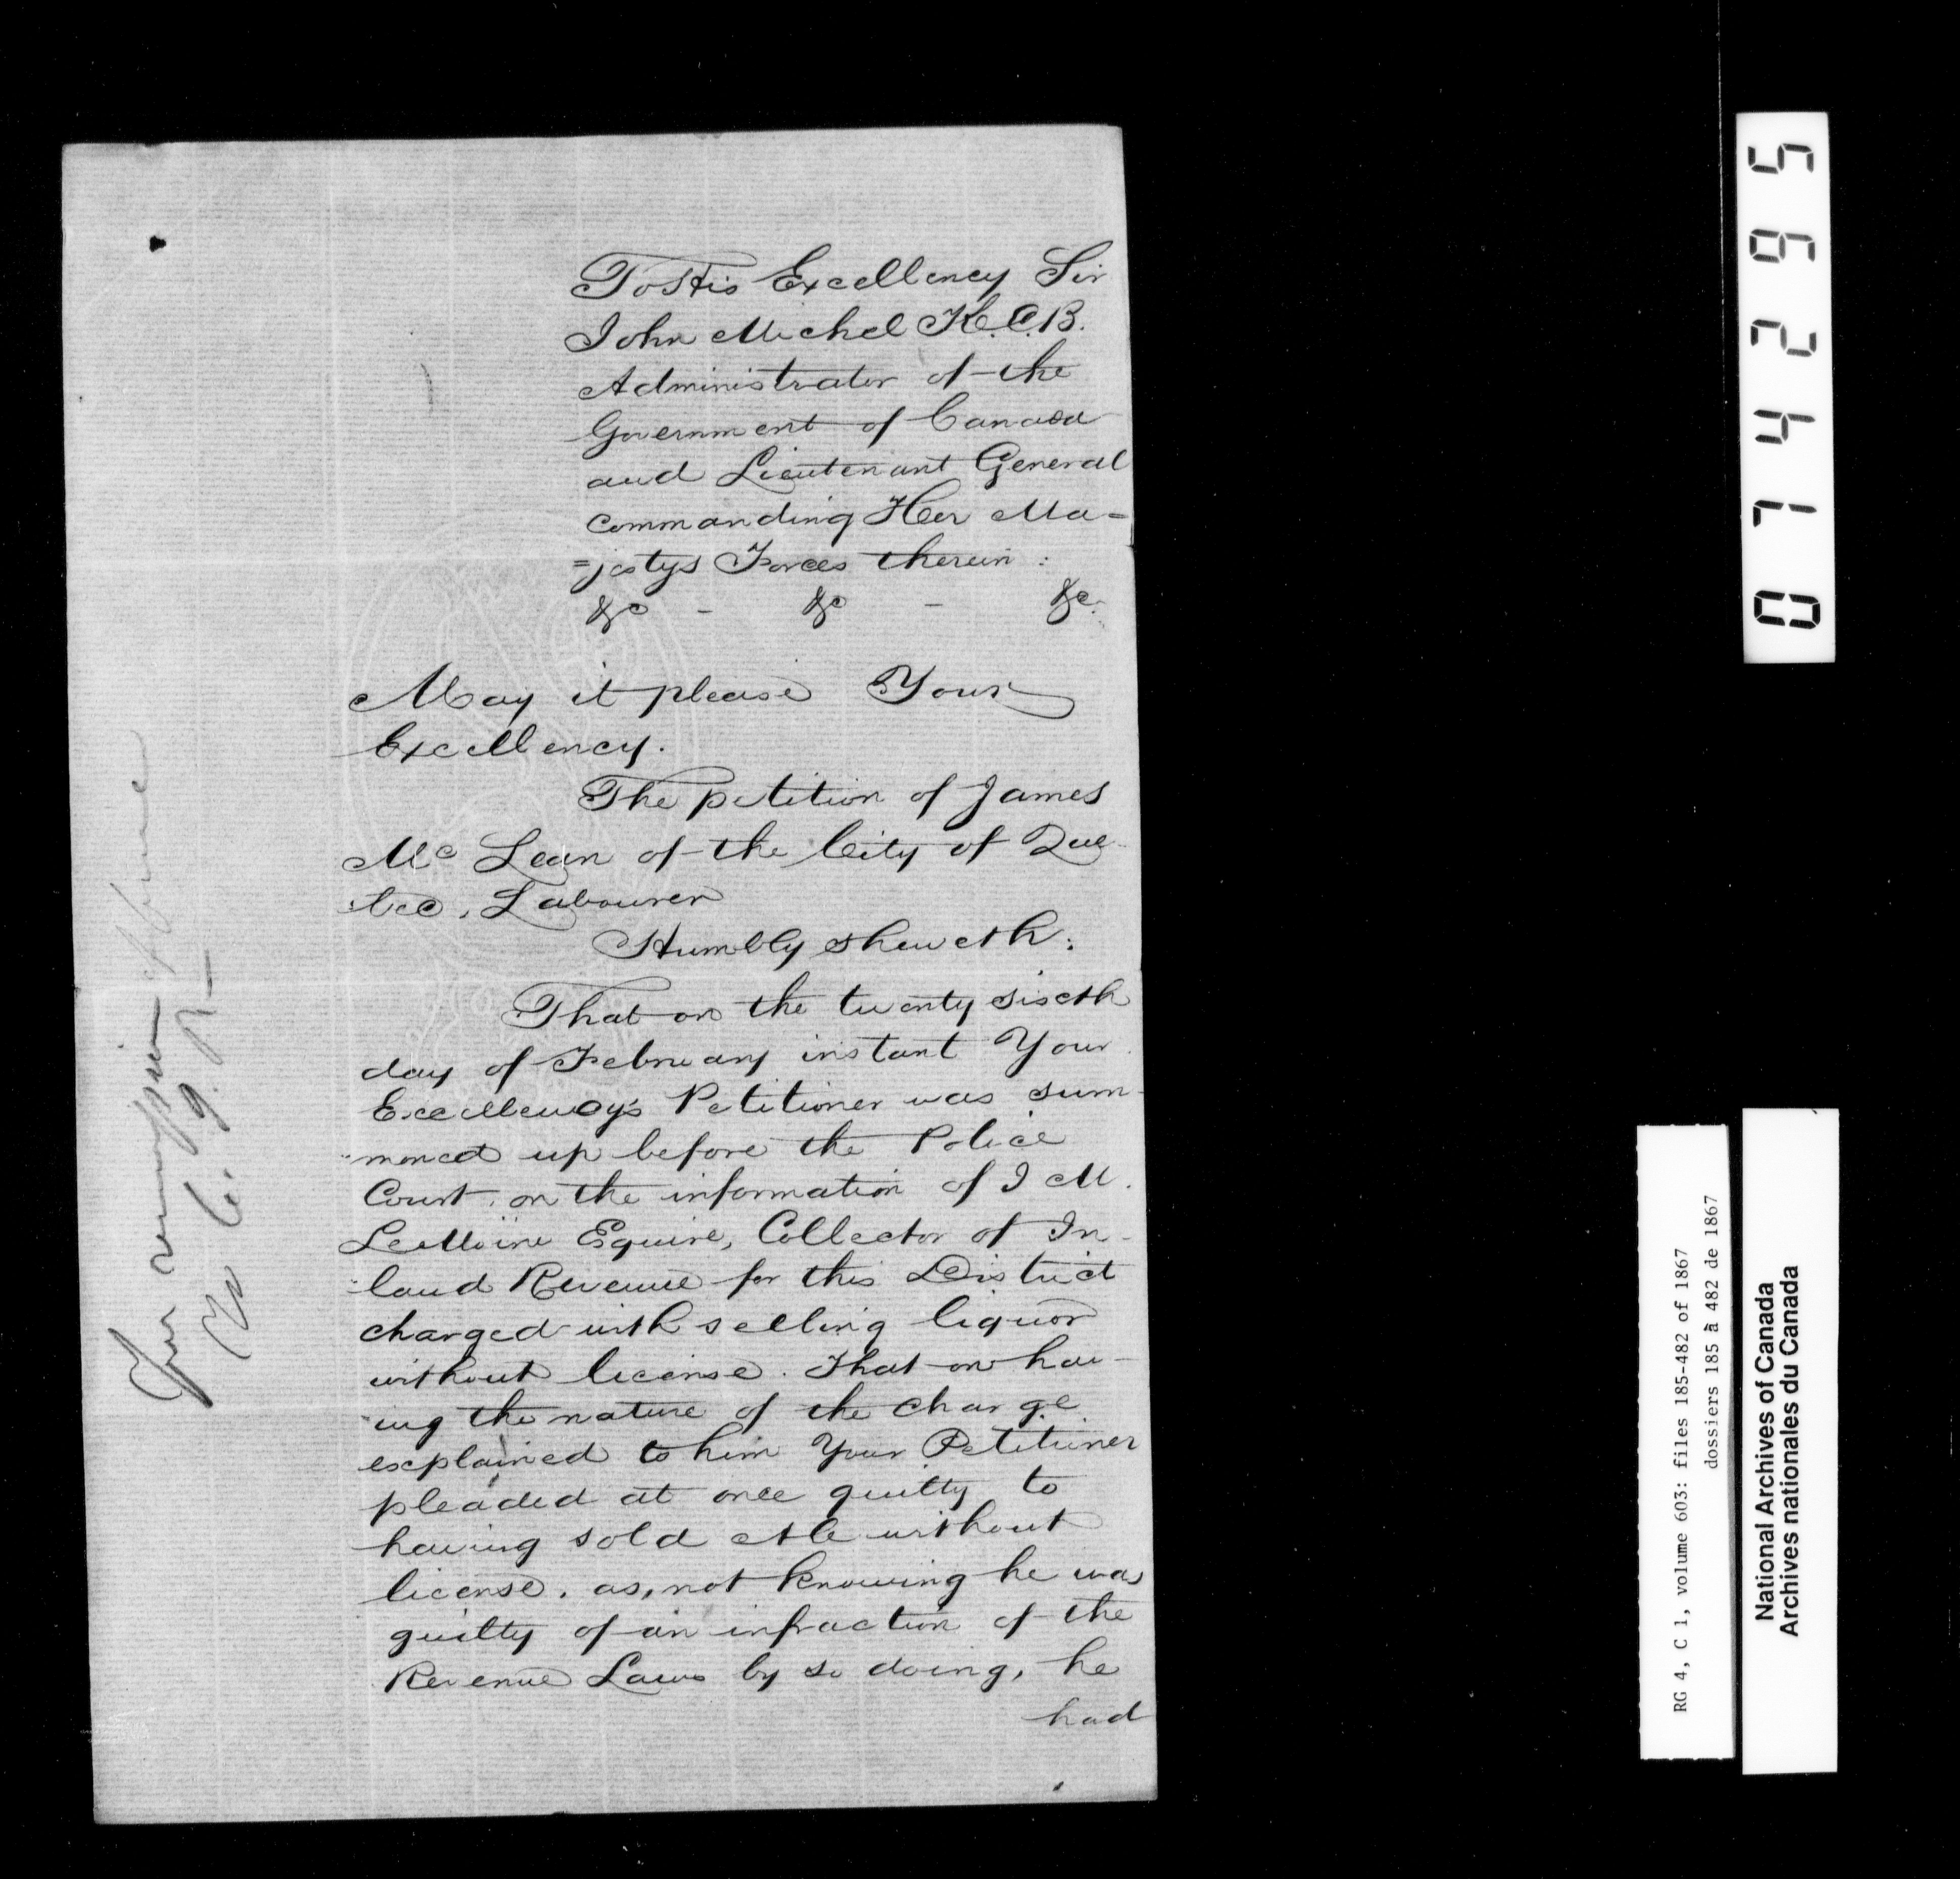 To His Excellency Sir
John Michel K.C.B.
Administrator of the
Government of Canada
and Lieutenant General
commanding Her Ma=
=jestys Forces therein :
&c - &c - &c.
May it please Your
Excellency.
The petition of James
Mc Lean of the City of Que-
-bec, Labourer
Humbly sheweth:
That on the twenty sixth
day of February instant Your
Excellency's Petitioner was sum-
-moned up before the Police
Court, on the information of J M.
LeMoine Esquire, Collector of In-
-land Revenue for this District
charged with selling liquor
without license. That on hav-
-ing the nature of the charge
explained to him Your Petitioner
pleaded at once guilty to
having sold Ale without
license, as, not knowing he was
guilty of an infraction of the
Revenue Laws by so doing, he
had
For remission of fine
074295
RG 4, C 1, volume 603: files 185-482 of 1867
dossiers 185 à 482 de 1867
National Archives of Canada
Archives nationales du Canada